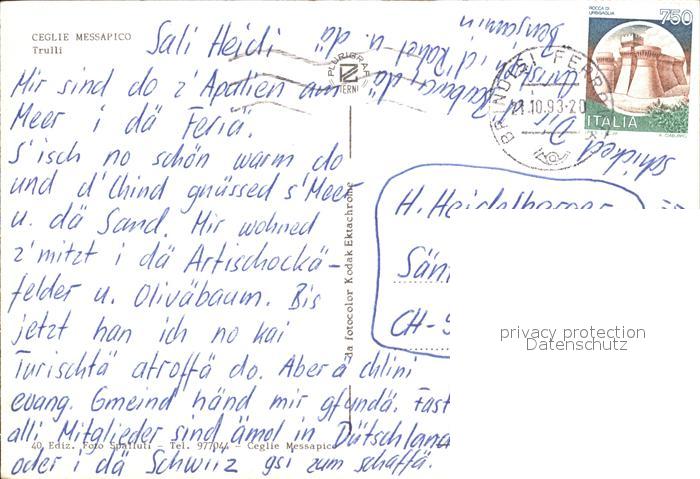 CEGLIE MESSAPICO
Trulli
Sali Heidi
Mir sind do z'Apulien am
Meer i dä Feriä.
S'isch no schön warm do
und d'Chind gnüssed s'Meer
u. dä Sand. Mir wohned
z'mitzt i dä Artischockä-
felder u. Oliväbaum. Bis
jetzt han ich no kai
Turischtä atroffä do. Aber ä chlini
evang. Gmeind händ mir gfundä. Fast
alli Mitglieder sind ämol in Dütschland
oder i dä Schwiiz gsi zum schaffä.
40 Ediz. Foto Spalluti - Tel. 977044 - Ceglie Messapico
Dir
schicked
Benjamin
PLURIGRAF
TERNI
da fotocolor Kodak Ektachrome
ROCCA DI
URBISAGLIA
750
ITALIA
BRINDISI FERR
21.10.93-20
H. Heidelberger
CH-9
privacy protection
Datenschutz